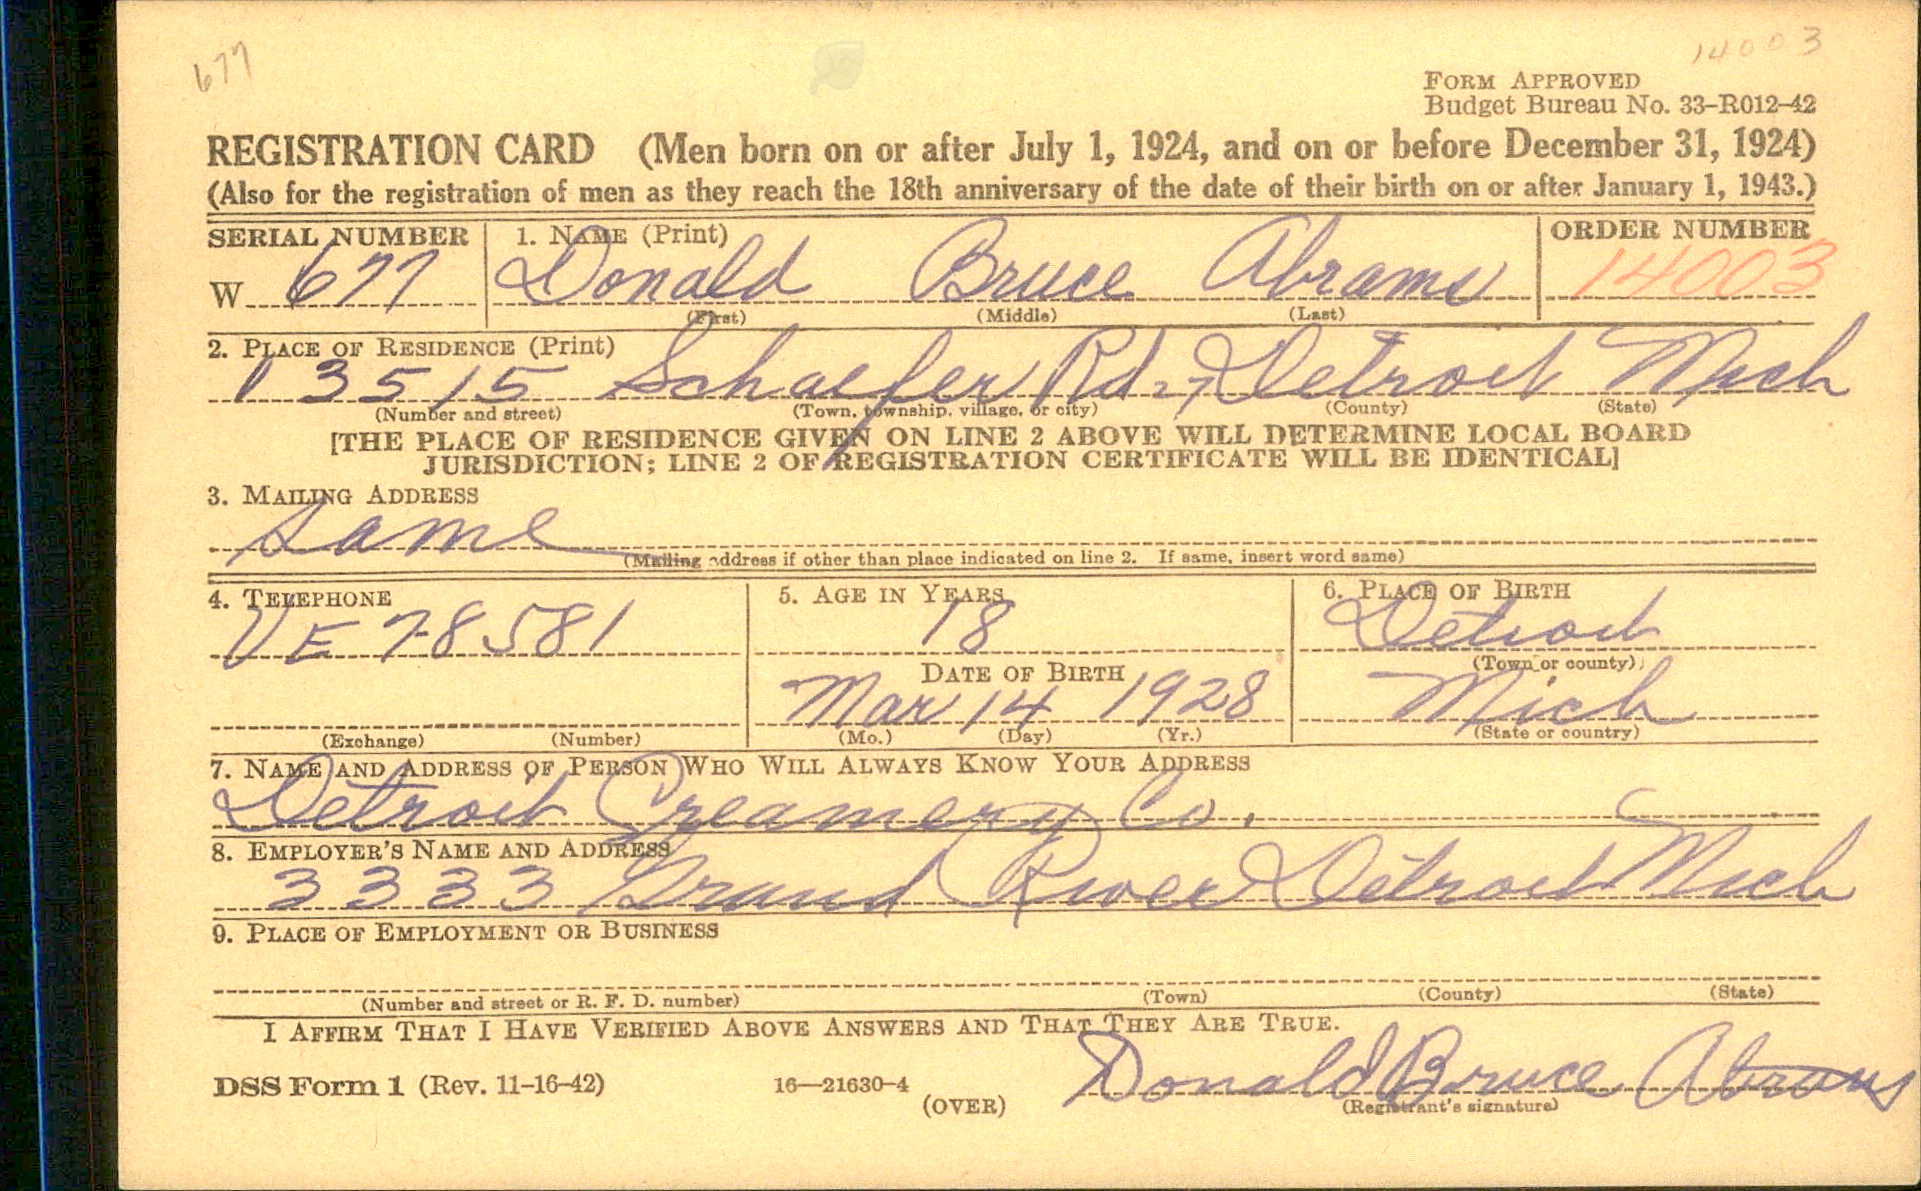 677
14003
FORM APPROVED
Budget Bureau No. 33-R012-42
REGISTRATION CARD (Men born on or after July 1, 1924, and on or before December 31, 1924)
(Also for the registration of men as they reach the 18th anniversary of the date of their birth on or after January 1, 1943.)
SERIAL NUMBER 1. NAME (Print) ORDER NUMBER
W 677 Donald Bruce Abrams 14003
(First) (Middle) (Last)
2. PLACE OF RESIDENCE (Print)
13515 Schaefer Rd. Detroit Mich
(Number and street) (Town, township, village, or city) (County) (State)
[THE PLACE OF RESIDENCE GIVEN ON LINE 2 ABOVE WILL DETERMINE LOCAL BOARD
JURISDICTION; LINE 2 OF REGISTRATION CERTIFICATE WILL BE IDENTICAL]
3. MAILING ADDRESS
Same
(Mailing address if other than place indicated on line 2. If same, insert word same)
4. TELEPHONE 5. AGE IN YEARS 6. PLACE OF BIRTH
VE 7-8581 18 Detroit
(Town or county)
DATE OF BIRTH
Mar 14 1928 Mich
(Exchange) (Number) (Mo.) (Day) (Yr.) (State or country)
7. NAME AND ADDRESS OF PERSON WHO WILL ALWAYS KNOW YOUR ADDRESS
Detroit Creamery Co.
8. EMPLOYER'S NAME AND ADDRESS
3333 Grand River Detroit Mich
9. PLACE OF EMPLOYMENT OR BUSINESS
(Number and street or R. F. D. number) (Town) (County) (State)
I AFFIRM THAT I HAVE VERIFIED ABOVE ANSWERS AND THAT THEY ARE TRUE.
Donald Bruce Abrams
DSS Form 1 (Rev. 11-16-42) 16—21630-4
(OVER) (Registrant's signature)